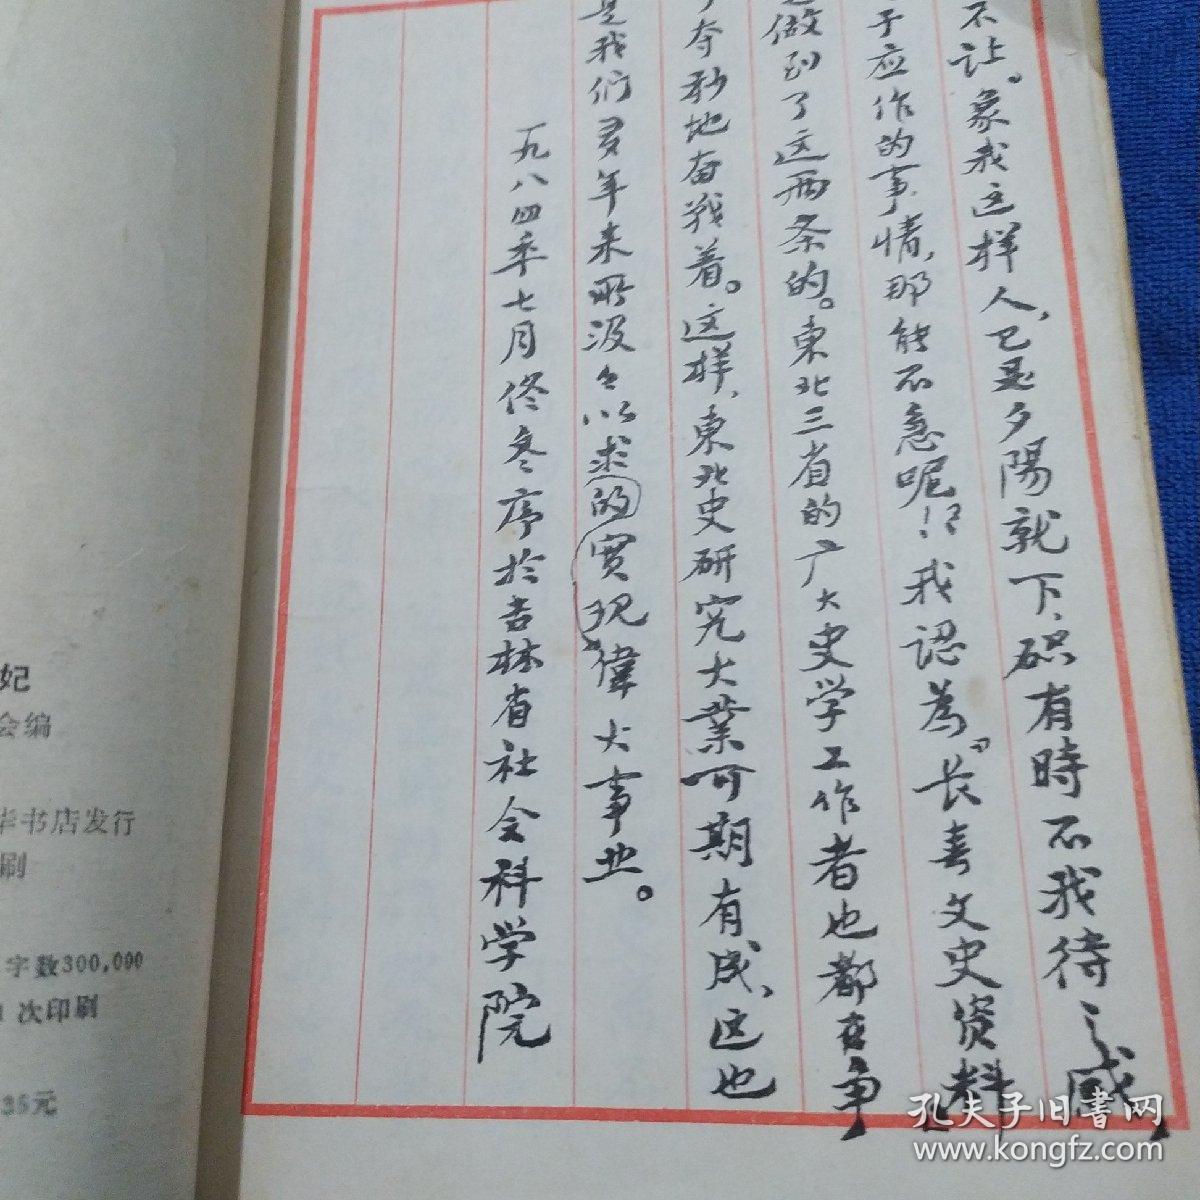 不让。象我这样人，已是夕陽就下，砾有時不我待之感，
子应作的事情，那能不急呢！？我認為《长春文史资料》
做到了这两条的。東北三省的广大史学工作者也都在争
夺秒地奋战着。这样，東北史研究大業可期有成，这也
是我们多年来所汲々以求的實现偉大事业。
一九八四年七月佟冬序於吉林省社会科学院
妃
会编
华书店发行
刷
字数300,000
次印刷
35元
孔夫子旧书网
www.kongfz.com